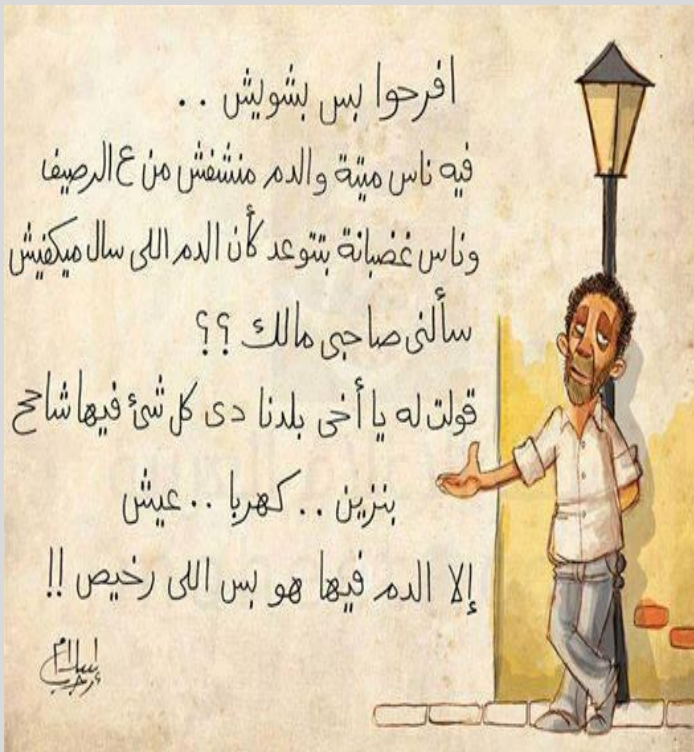 افرحوا بس بشويش ..
فيه ناس ميتة والدم منشفش من ع الرصيف
وناس غضبانة بتتوعد كأن الدم اللى سال ميكفيش
سألنى صاحبى مالك ؟؟
قولت له يا أخى بلدنا دى كل شئ فيها شاحح
بنزين .. كهربا .. عيش
إلا الدم فيها هو بس اللى رخيص !!
إسلام
رجب